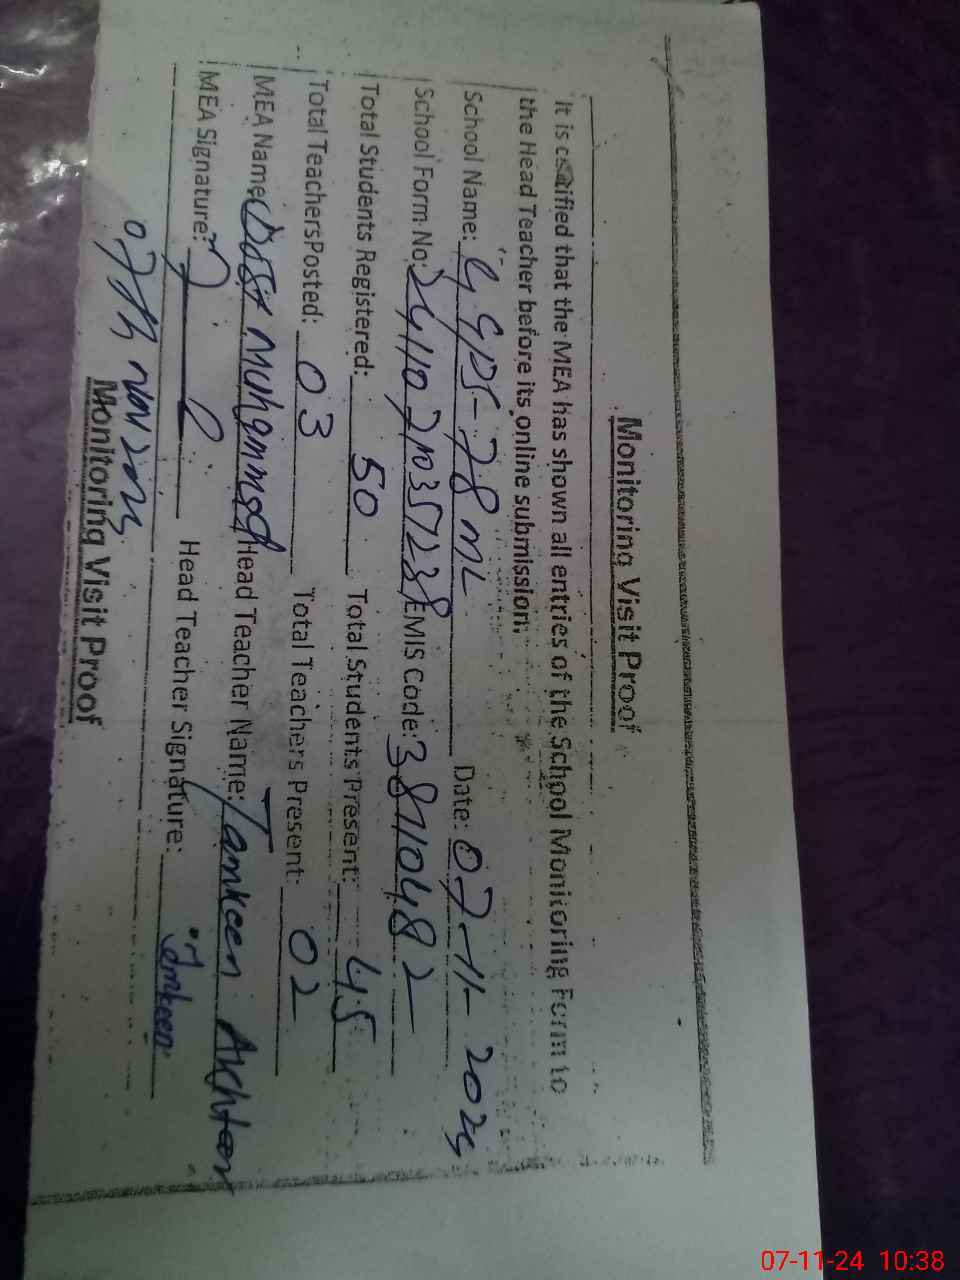 Monitoring Visit Proof
It is certified that the MEA has shown all entries of the School Monitoring Form to
the Head Teacher before its online submission.
School Name: GGPS-78 ML Date: 07-11-2024
School Form No: EMIS Code: 38710482
Total Students Registered: 50 Total Students Present: 45
Total Teachers Posted: 03 Total Teachers Present: 02
MEA Name: Dost Muhammad Head Teacher Name: Tamkeen Akhtar
MEA Signature: Head Teacher Signature: Tamkeen
07th Nov
Monitoring Visit Proof
07-11-24 10:38